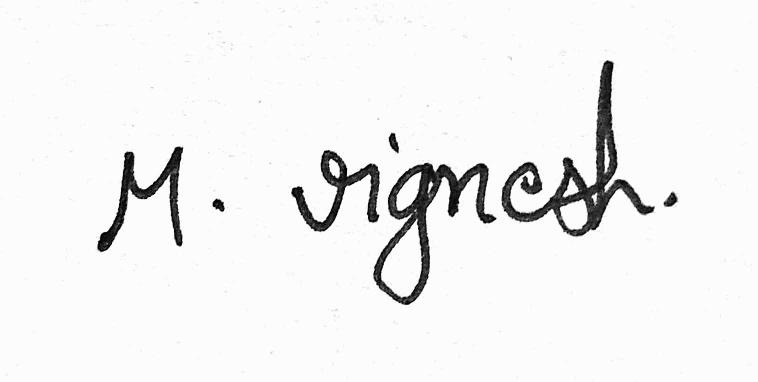 M. vignesh.